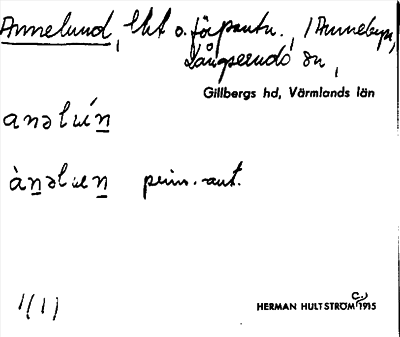 Annelund, lht o. förpantn., i Anneby,
Långserud sn,
Gillbergs hd, Värmlands län
anəlún̲
àn̲əluen̲ prim. -aut.
1/(1)
HERMAN HULTSTRÖM C:a 1915